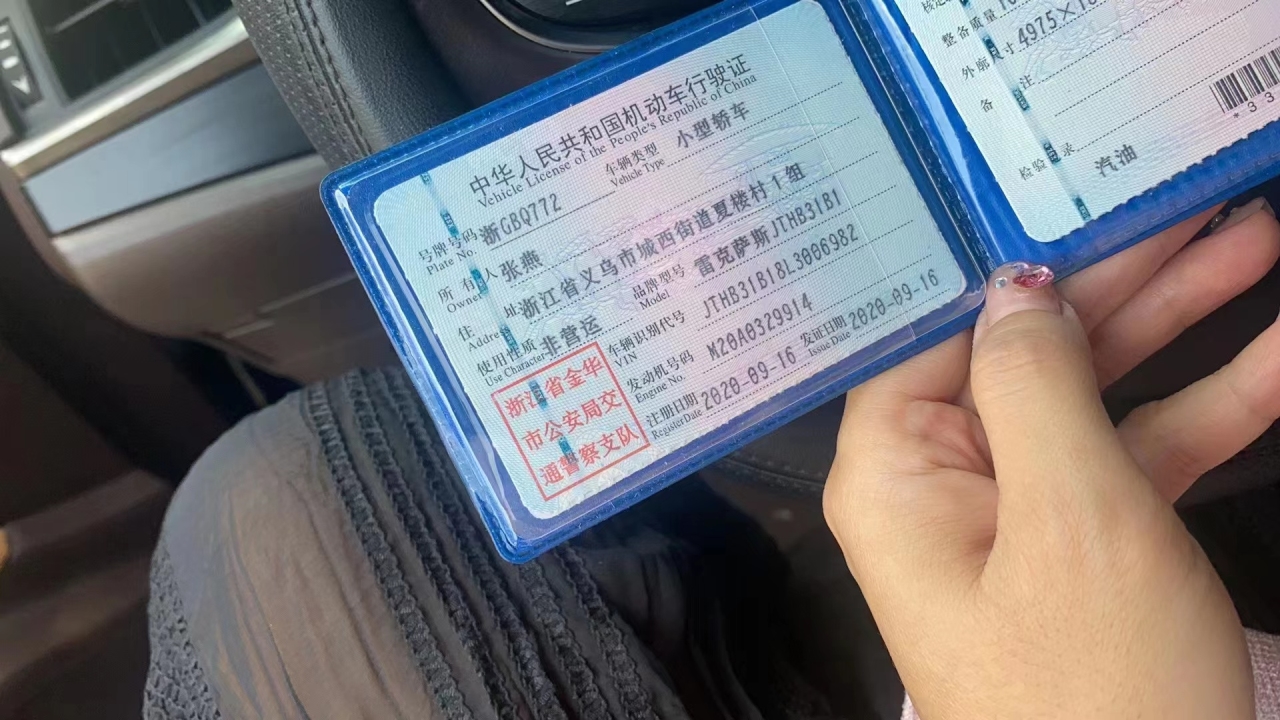 中华人民共和国机动车行驶证
Vehicle License of the People's Republic of China
号牌号码 浙GBQ772 车辆类型 小型轿车
Plate No. Vehicle Type
所有人 张燕
Owner
住址 浙江省义乌市城西街道夏楼村1组
Address
使用性质 非营运 品牌型号 雷克萨斯JTHB31B1
Use Character Model
车辆识别代号 JTHB31B18L3006982
VIN
发动机号码 M20A0329914
Engine No.
注册日期 2020-09-16 发证日期 2020-09-16
Register Date Issue Date
浙江省金华
市公安局交
通警察支队
整备质量
外廓尺寸 4975×18
备注
检验记录
汽油
*33